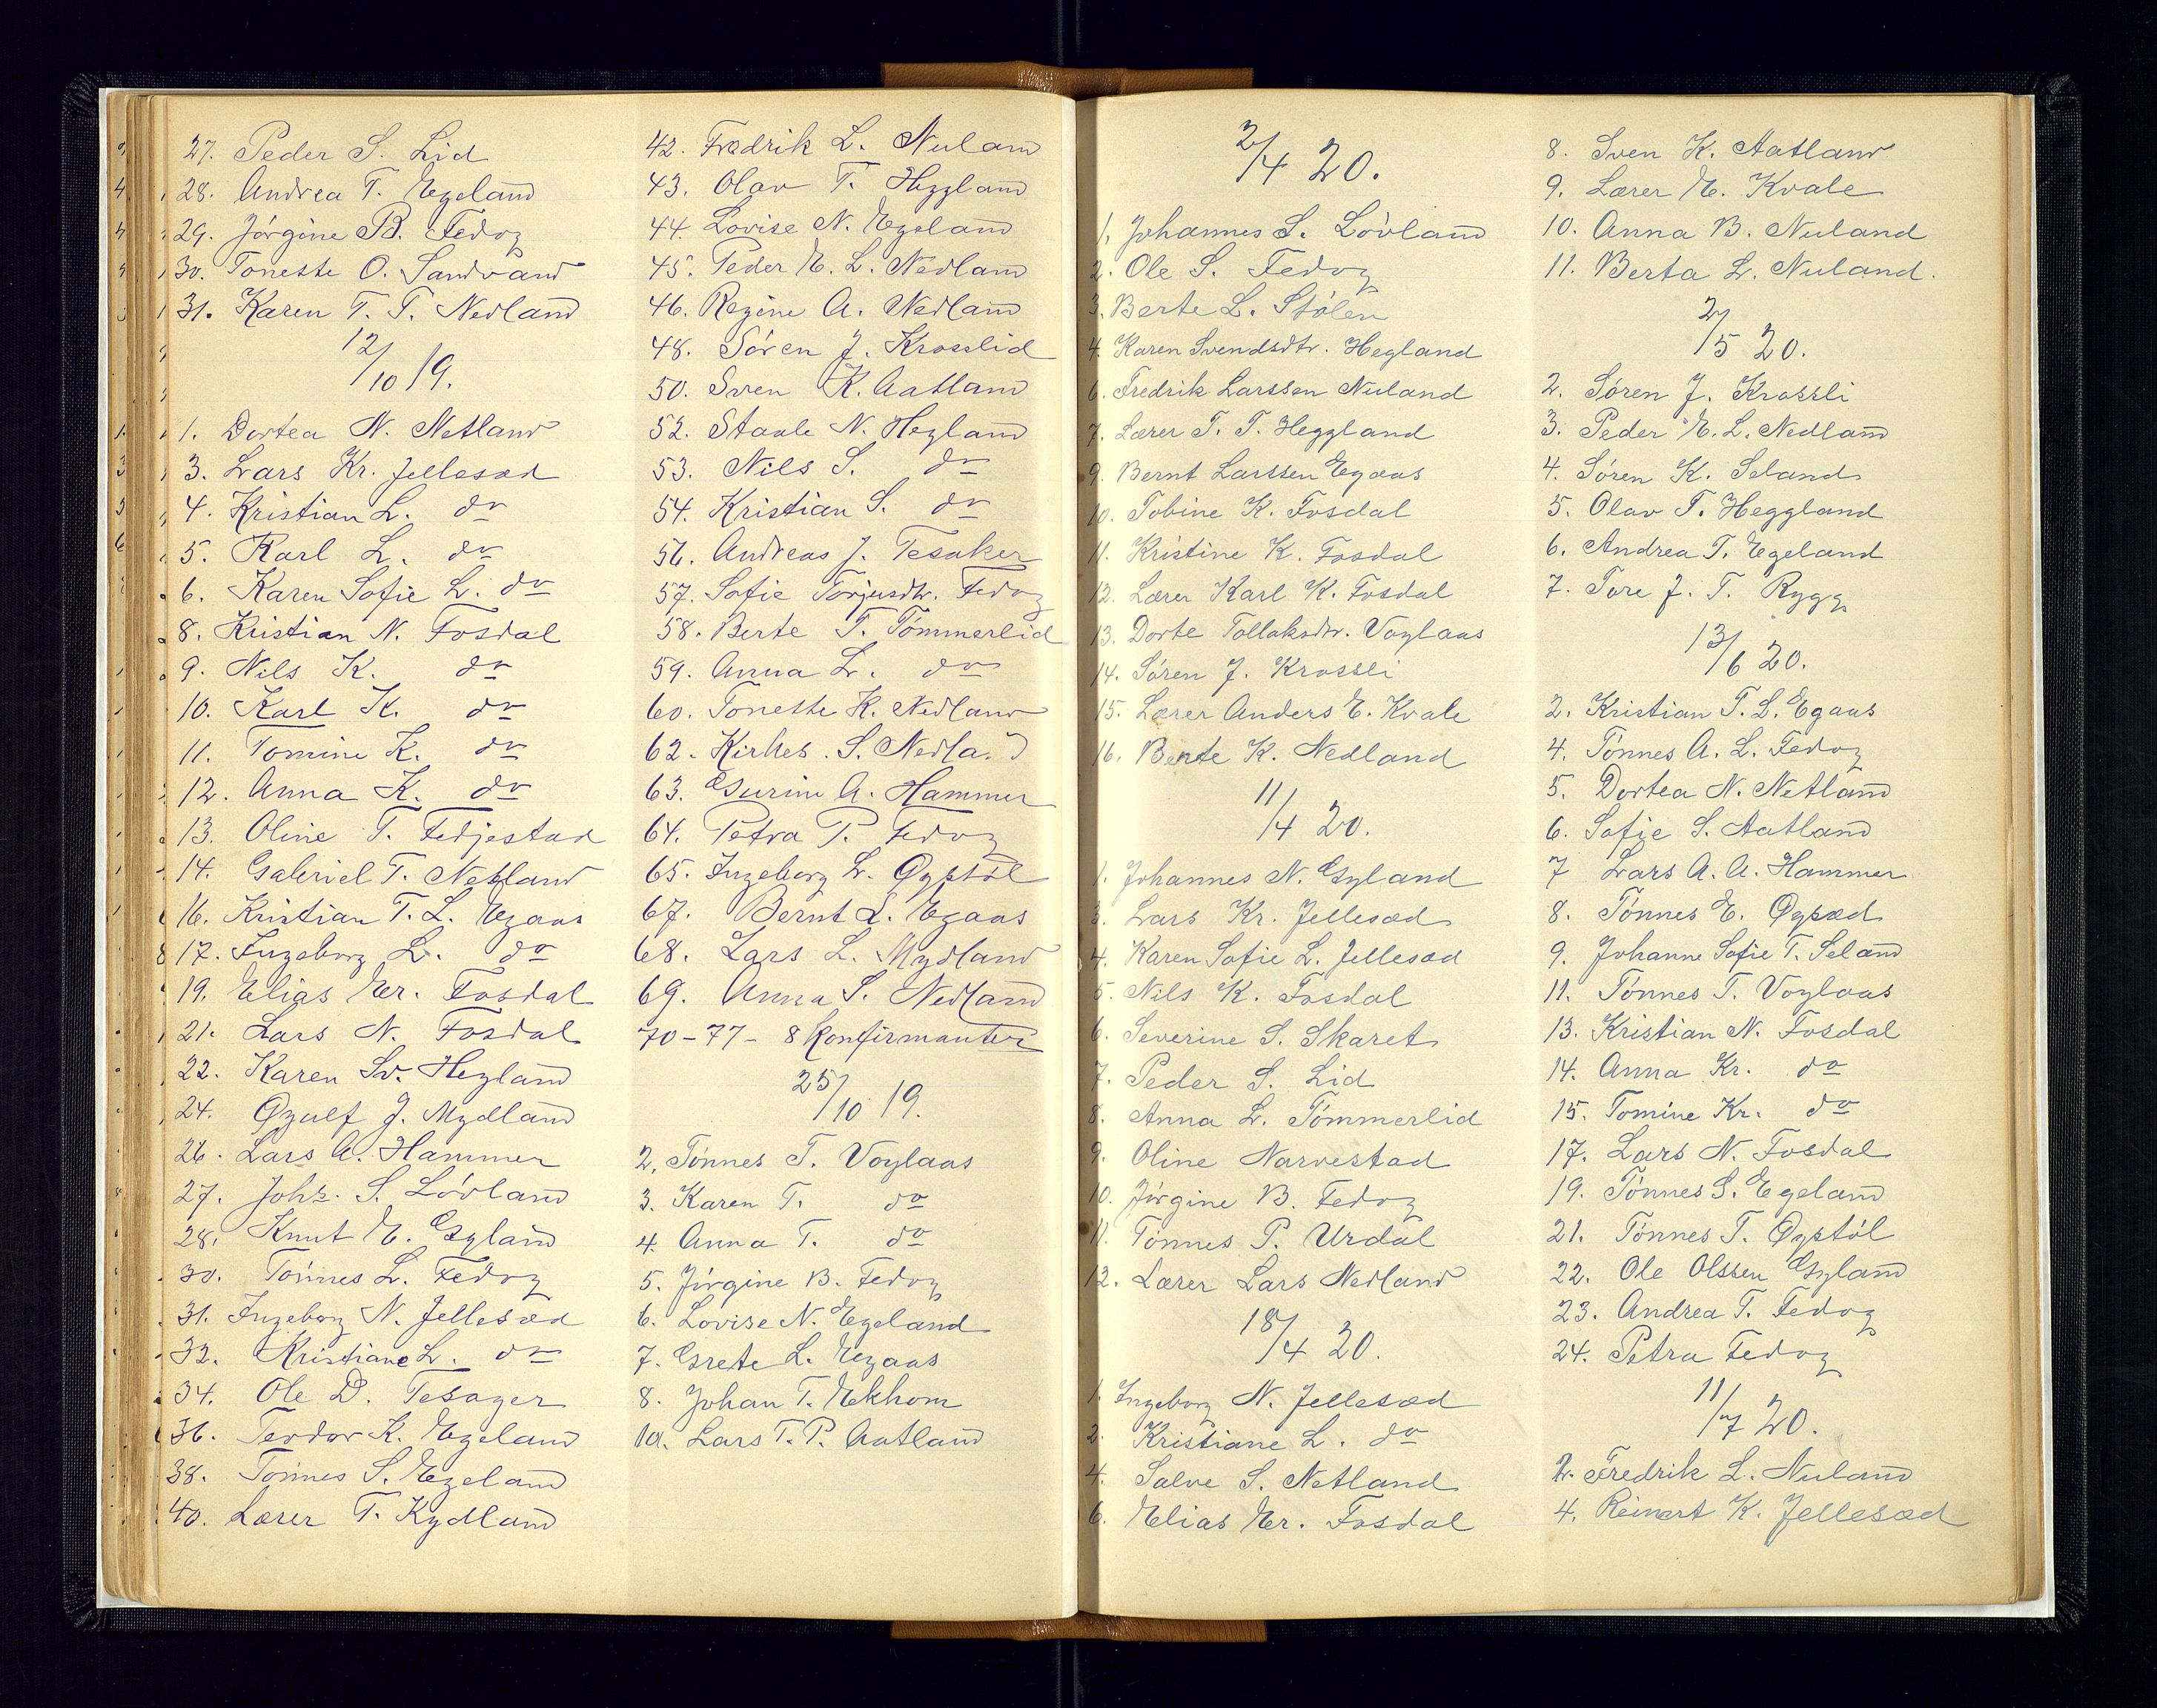 27. Peder S. Lid
28. Andrea T. Egeland
29. Jörgine B. Fedog
30. Tonette O. Sandvand
31. Karen T. T. Nedland
12/10 19.
1. Dortea N. Netland
3. Lars Kr. Jellesæd
4. Kristian L. do
5. Karl L. do
6. Karen Sofie L. do
8. Kristian N. Fosdal
9. Nils K. do
10. Karl K. do
11. Tomine K. do
12. Anna K. do
13. Oline T. Fedjestad
14. Gabriel T. Netland
16. Kristian T. L. Egaas
17. Ingeborg L. do
19. Elias Er. Fosdal
21. Lars N. Fosdal
22. Karen Sv. Hegland
24. Øgulf J. Mydland
26. Lars A. Hammer
27. Johs. S. Lövland
28. Knut E. Gyland
30. Tönnes L. Fedog
31. Ingeborg N. Jellesæd
32. Kristiane L. do
34. Ole D. Tesager
36. Teodor K. Egeland
38. Tönnes S. Egeland
40. Lærer T. Kydland
42. Fredrik L. Nuland
43. Olav T. Heggland
44. Lovise N. Egeland
45. Peder E. L. Nedland
46. Regine A. Nedland
48. Sören J. Krosslid
50. Sven K. Aatland
52. Staale N. Hegland
53. Nils S. do
54. Kristian S. do
56. Andreas J. Tesaker
57. Sofie Torjusdtr. Fedog
58. Berte T. Tömmerlid
59. Anna L. do
60. Tonette K. Nedland
62. Kirkes. S. Nedland
63. Gurine A. Hammer
64. Petra P. Fedog
65. Ingeborg L. Øystöl
67. Bernt L. Egaas
68. Lars L. Mydland
69. Anna S. Nedland
70-77- 8 konfirmanter
25/10 19.
2. Tönnes T. Voglaas
3. Karen T. do
4. Anna T. do
5. Jörgine B. Fedog
6. Lovise N. Egeland
7. Grete L. Egaas
8. Johan T. Ekhom
10. Lars T. P. Aatland
2/4 20.
1. Johannes S. Lövland
2. Ole S. Fedog
3. Berte L. Stölen
4. Karen Svendsdtr. Hegland
6. Fredrik Larssen Nuland
7. Lærer T. T. Heggland
9. Bernt Larssen Egaas
10. Tobine K. Fosdal
11. Kristine K. Fosdal
12. Lærer Karl K. Fosdal
13. Dorte Tollaksdtr. Voglaas
14. Sören J. Krossli
15. Lærer Anders E. Kvale
16. Berte K. Nedland
11/4 20.
1. Johannes N. Gyland
3. Lars Kr. Jellesæd
4. Karen Sofie L. Jellesæd
5. Nils K. Fosdal
6. Severine S. Skaret
7. Peder S. Lid
8. Anna L. Tömmerlid
9. Oline Narvestad
10. Jörgine B. Fedog
11. Tönnes P. Urdal
12. Lærer Lars Nedland
18/4 20.
1. Ingeborg N. Jellesæd
2. Kristiane L. do
4. Salve S. Netland
6. Elias Er. Fosdal
8. Sven K. Aatland
9. Lærer E. Kvale
10. Anna B. Nuland
11. Berta L. Nuland.
2/5 20.
2. Sören J. Krossli
3. Peder E. L. Nedland
4. Sören K. Seland
5. Olav T. Heggland
6. Andrea T. Egeland
7. Tore J. T. Rygg
13/6 20.
2. Kristian T. L. Egaas
4. Tönnes A. L. Fedog
5. Dortea N. Netland
6. Sofie S. Aatland
7 Lars A. A. Hammer
8. Tönnes E. Øysæd
9. Johanne Sofie T. Seland
11. Tönnes T. Voglaas
13. Kristian N. Fosdal
14. Anna Kr. do
15. Tomine Kr. do
17. Lars N. Fosdal
19. Tönnes S. Egeland
21. Tönnes T. Øystöl
22. Ole Olssen Gyland
23. Andrea T. Fedog
24. Petra Fedog
11/7 20.
2. Fredrik L. Nuland
4. Reinert K. Jellesæd